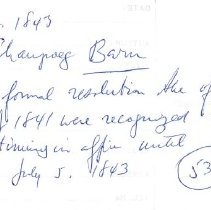 . 1843
Champoeg Barn
formal resolution the of
of 1841 were recognized
tinuing in office until
July 5. 1843
53